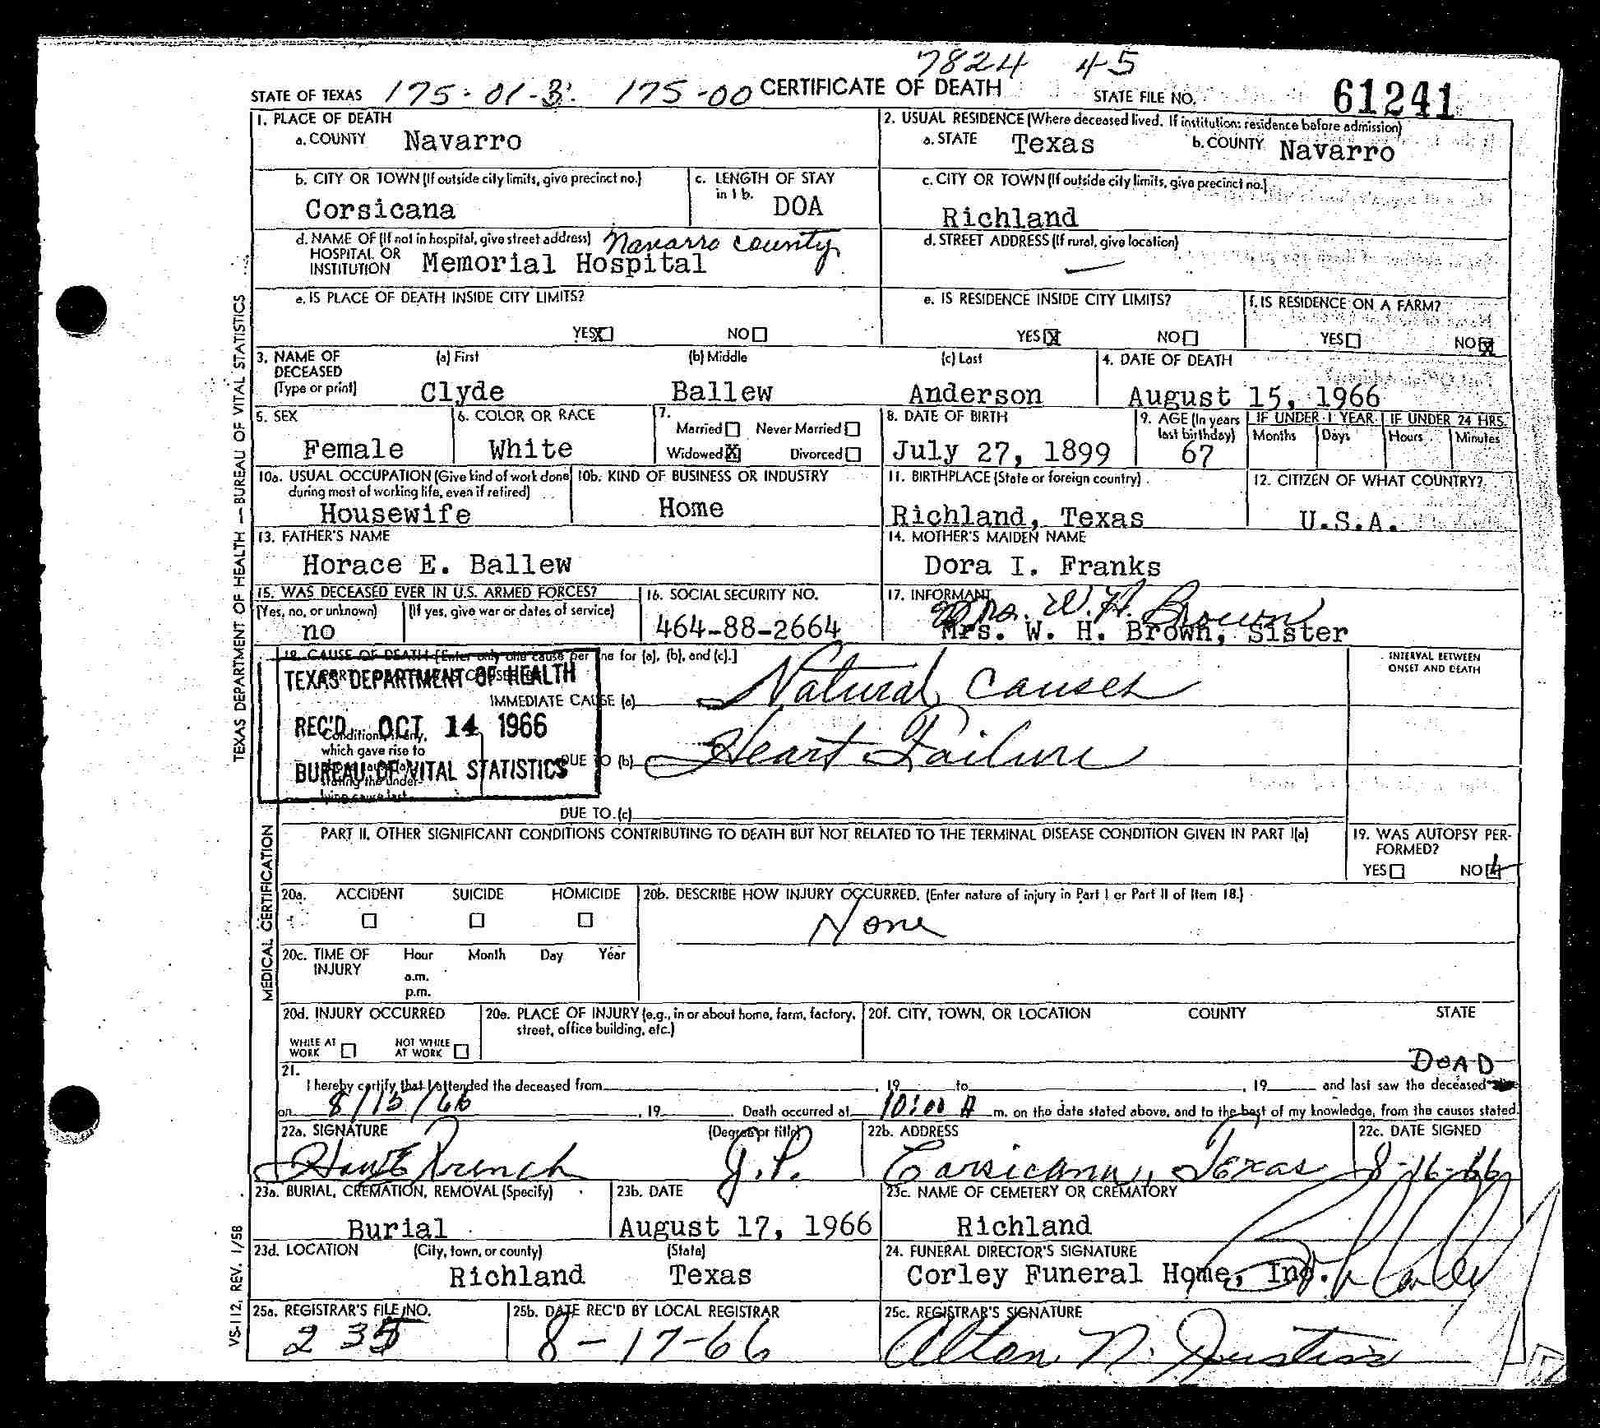 7824 45
STATE OF TEXAS 175-01-3 175-00 CERTIFICATE OF DEATH STATE FILE NO. 61241
1. PLACE OF DEATH
a. COUNTY Navarro
2. USUAL RESIDENCE (Where deceased lived. If institution: residence before admission)
a. STATE Texas b. COUNTY Navarro
b. CITY OR TOWN (If outside city limits, give precinct no.)
Corsicana
c. LENGTH OF STAY
in 1 b. DOA
c. CITY OR TOWN (If outside city limits, give precinct no.)
Richland
d. NAME OF (If not in hospital, give street address) Navarro county
HOSPITAL OR
INSTITUTION Memorial Hospital
d. STREET ADDRESS (If rural, give location)
e. IS PLACE OF DEATH INSIDE CITY LIMITS?
YES X NO
e. IS RESIDENCE INSIDE CITY LIMITS?
YES X NO
f. IS RESIDENCE ON A FARM?
YES NO X
3. NAME OF DECEASED
(Type or print)
(a) First (b) Middle (c) Last
Clyde Ballew Anderson
4. DATE OF DEATH
August 15, 1966
5. SEX
Female
6. COLOR OR RACE
White
7.
Married Never Married
Widowed X Divorced
8. DATE OF BIRTH
July 27, 1899
9. AGE (In years
last birthday)
67
IF UNDER 1 YEAR IF UNDER 24 HRS.
Months Days Hours Minutes
10a. USUAL OCCUPATION (Give kind of work done
during most of working life, even if retired)
Housewife
10b. KIND OF BUSINESS OR INDUSTRY
Home
11. BIRTHPLACE (State or foreign country)
Richland, Texas
12. CITIZEN OF WHAT COUNTRY?
U.S.A.
13. FATHER'S NAME
Horace E. Ballew
14. MOTHER'S MAIDEN NAME
Dora I. Franks
15. WAS DECEASED EVER IN U.S. ARMED FORCES?
(Yes, no, or unknown) (If yes, give war or dates of service)
no
16. SOCIAL SECURITY NO.
464-88-2664
17. INFORMANT
Mrs. W. H. Brown
Mrs. W. H. Brown, Sister
18. CAUSE OF DEATH [Enter only one cause per line for (a), (b), and (c).]
INTERVAL BETWEEN
ONSET AND DEATH
TEXAS DEPARTMENT OF HEALTH
REC'D OCT 14 1966
BUREAU OF VITAL STATISTICS
IMMEDIATE CAUSE (a) Natural causes
Conditions, if any,
which gave rise to
stating the under-
lying cause last.
DUE TO (b) Heart Failure
DUE TO (c)
PART II. OTHER SIGNIFICANT CONDITIONS CONTRIBUTING TO DEATH BUT NOT RELATED TO THE TERMINAL DISEASE CONDITION GIVEN IN PART I(a)
19. WAS AUTOPSY PER-
FORMED?
YES NO
20a. ACCIDENT SUICIDE HOMICIDE
20b. DESCRIBE HOW INJURY OCCURRED. (Enter nature of injury in Part I or Part II of Item 18.)
None
20c. TIME OF
INJURY
Hour Month Day Year
a.m.
p.m.
20d. INJURY OCCURRED
WHILE AT
WORK
NOT WHILE
AT WORK
20e. PLACE OF INJURY (e.g., in or about home, farm, factory,
street, office building, etc.)
20f. CITY, TOWN, OR LOCATION COUNTY STATE
DEAD
21.
I hereby certify that I attended the deceased from , 19 to , 19 and last saw the deceased
on 8/15/66 , 19 . Death occurred at 10:00 A m. on the date stated above, and to the best of my knowledge, from the causes stated.
22a. SIGNATURE (Degree or title)
French J.P.
22b. ADDRESS
Corsicana, Texas
22c. DATE SIGNED
8-16-66
23a. BURIAL, CREMATION, REMOVAL (Specify)
Burial
23b. DATE
August 17, 1966
23c. NAME OF CEMETERY OR CREMATORY
Richland
23d. LOCATION (City, town, or county) (State)
Richland Texas
24. FUNERAL DIRECTOR'S SIGNATURE
Corley Funeral Home, Inc.
25a. REGISTRAR'S FILE NO.
235
25b. DATE REC'D BY LOCAL REGISTRAR
8-17-66
25c. REGISTRAR'S SIGNATURE
Alton N. Justiss
TEXAS DEPARTMENT OF HEALTH—BUREAU OF VITAL STATISTICS
MEDICAL CERTIFICATION
VS-112, REV. 1/58